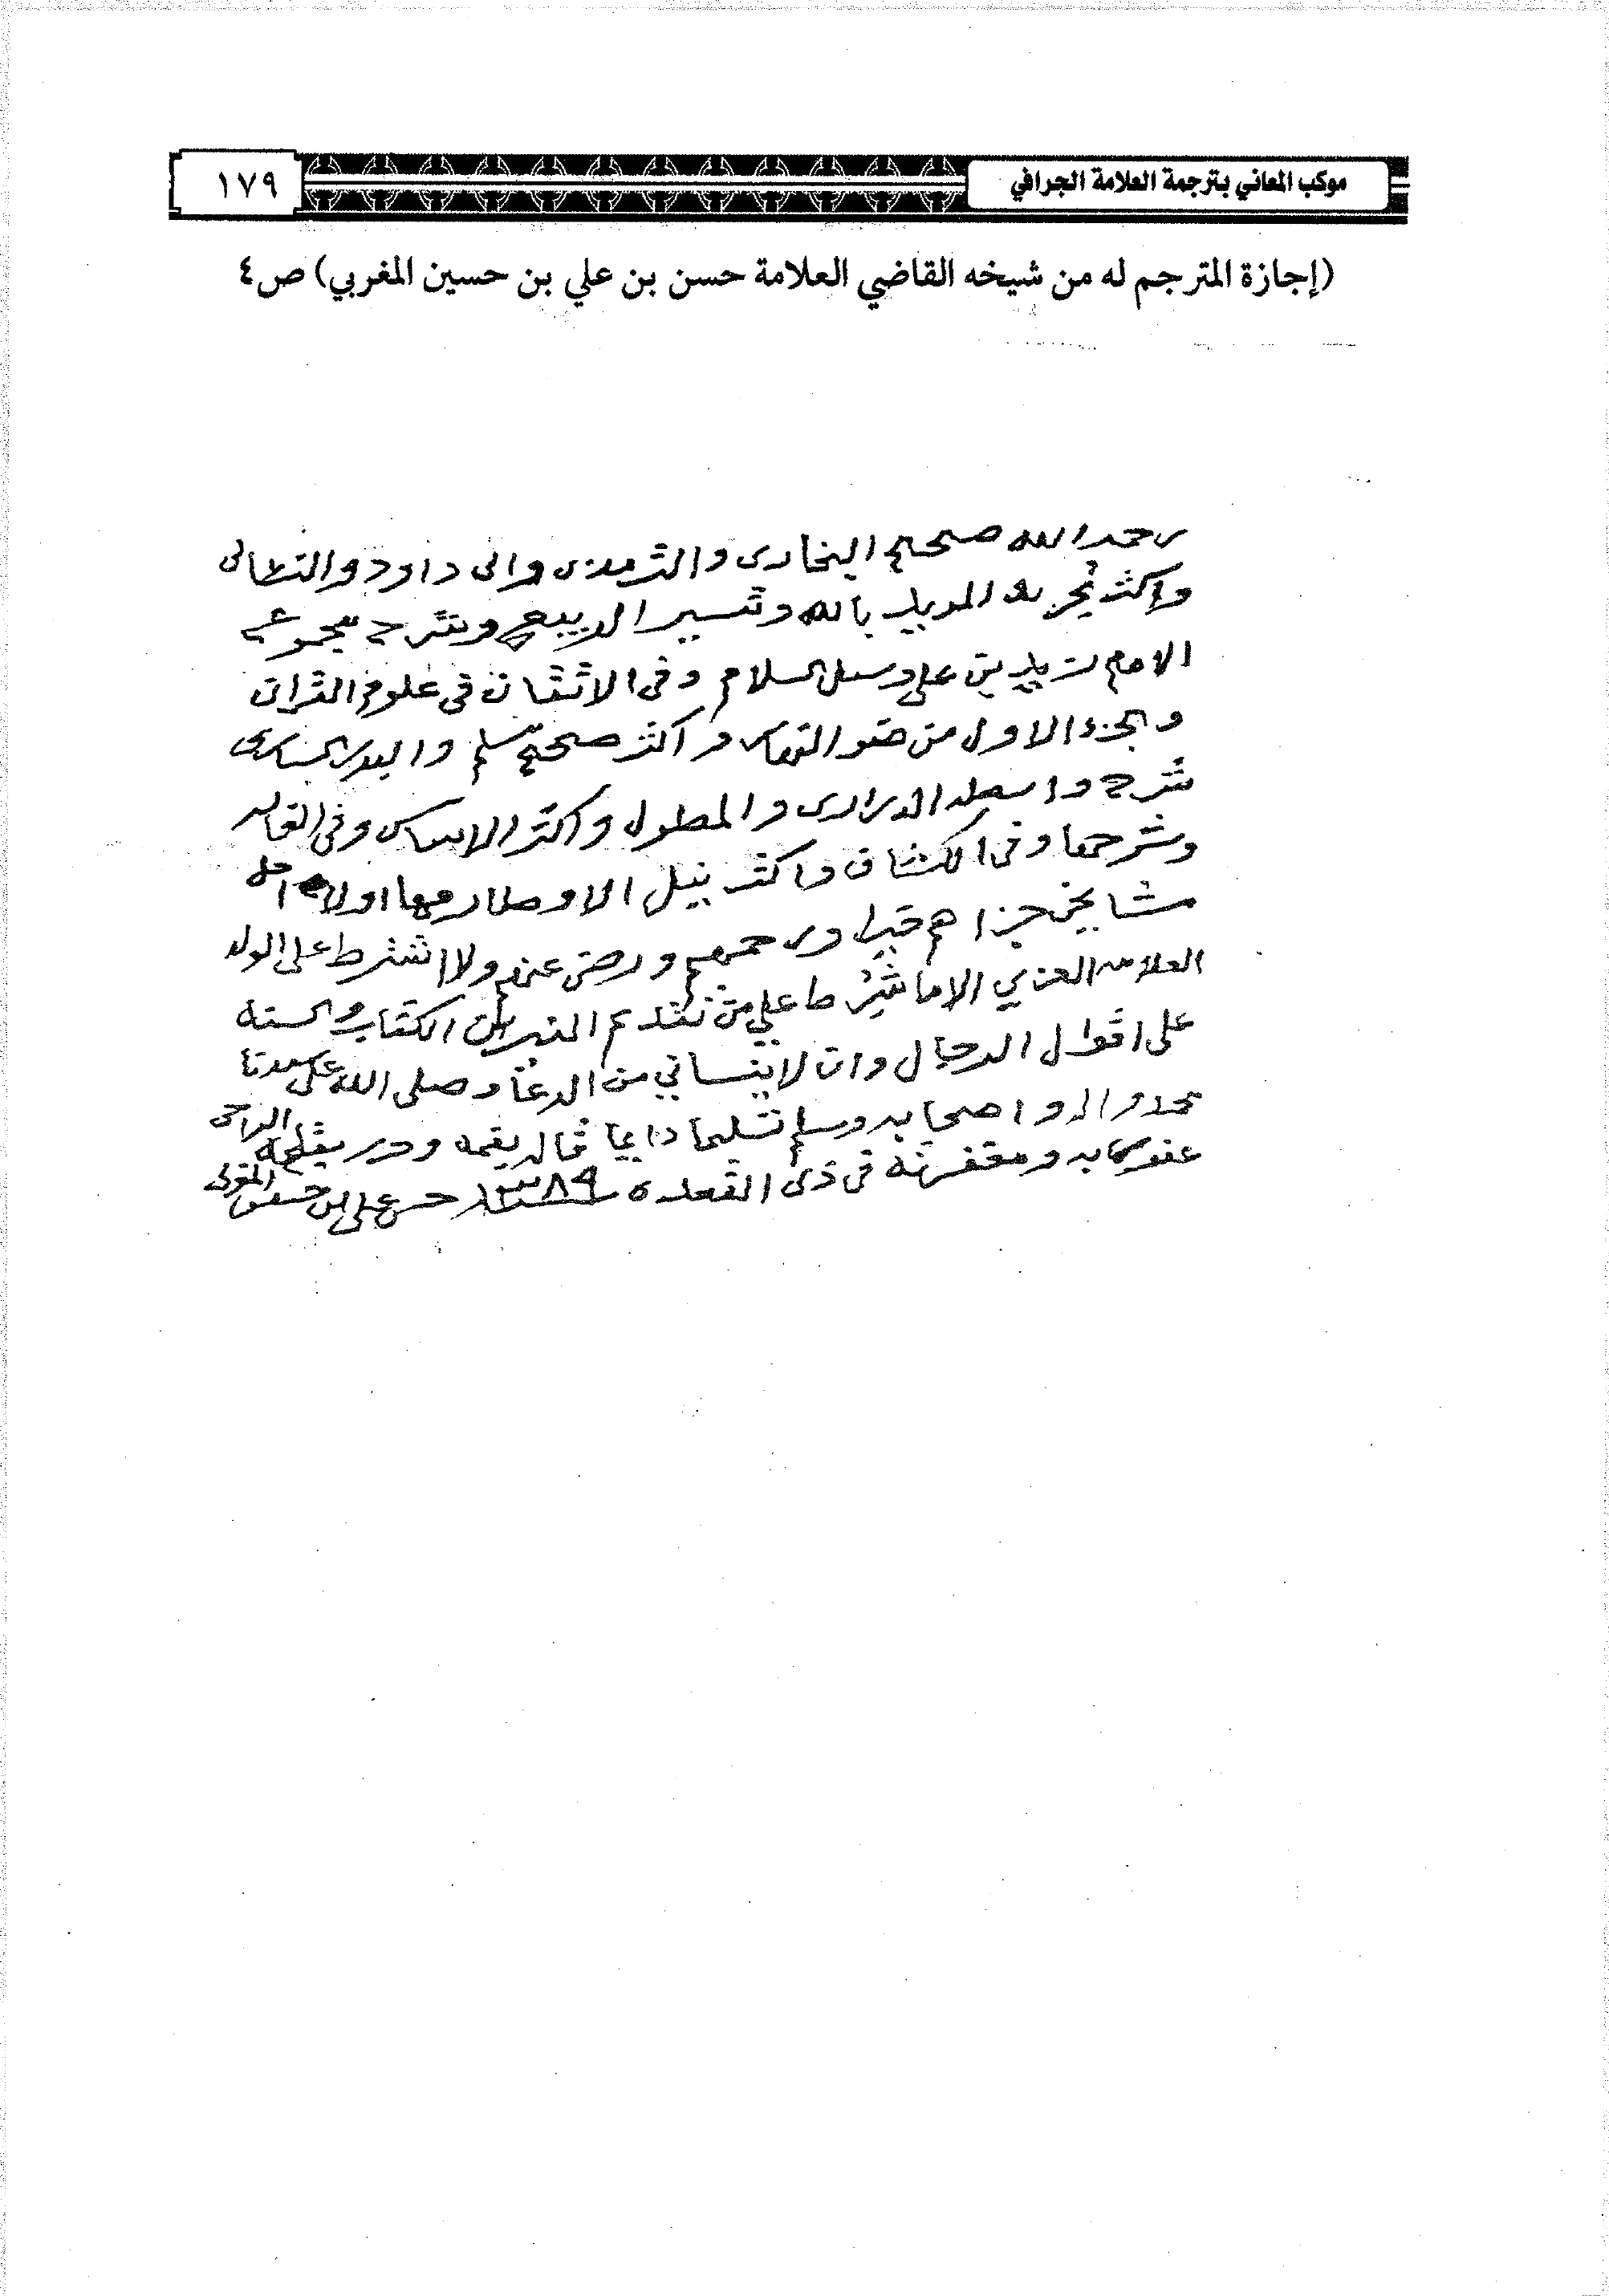 موكب المعاني بترجمة العلامة الجرافي
١٧٩
(إجازة المترجم له من شيخه القاضي العلامة حسن بن علي بن حسين المغربي) ص٤
رحمه الله صحيح البخارى والترمذى وابى داود
واكثر تجريد المويد بالله وتيسير الديبع وشرح مجموع
الامام زيد بن على السلام وفى الاتقان فى علوم القران
والجزء الاول من ضو النهار واكثر صحيح مسلم
شرح الدرارى والمطول واكثر الاساس وفى
وشرحها وفى الكشاف واكثر نيل الاوطار
مشايخى جزاهم خيرا ورحمهم ورضى عنهم ولا اشترط على الولد
العلامه العزي الا ما شرط علي من تقديم الكتاب والسنه
على اقوال الرجال وان لا ينساني من الدعا وصلى الله على سيدنا
محمد واله واصحابه وسلم تسليما دايما قاله بفمه وحرر بقلمه الراجى
عفو ربه ومغفرته فى ذى القعده سنة ١٣٨٩ حسن على بن حسين المغربى